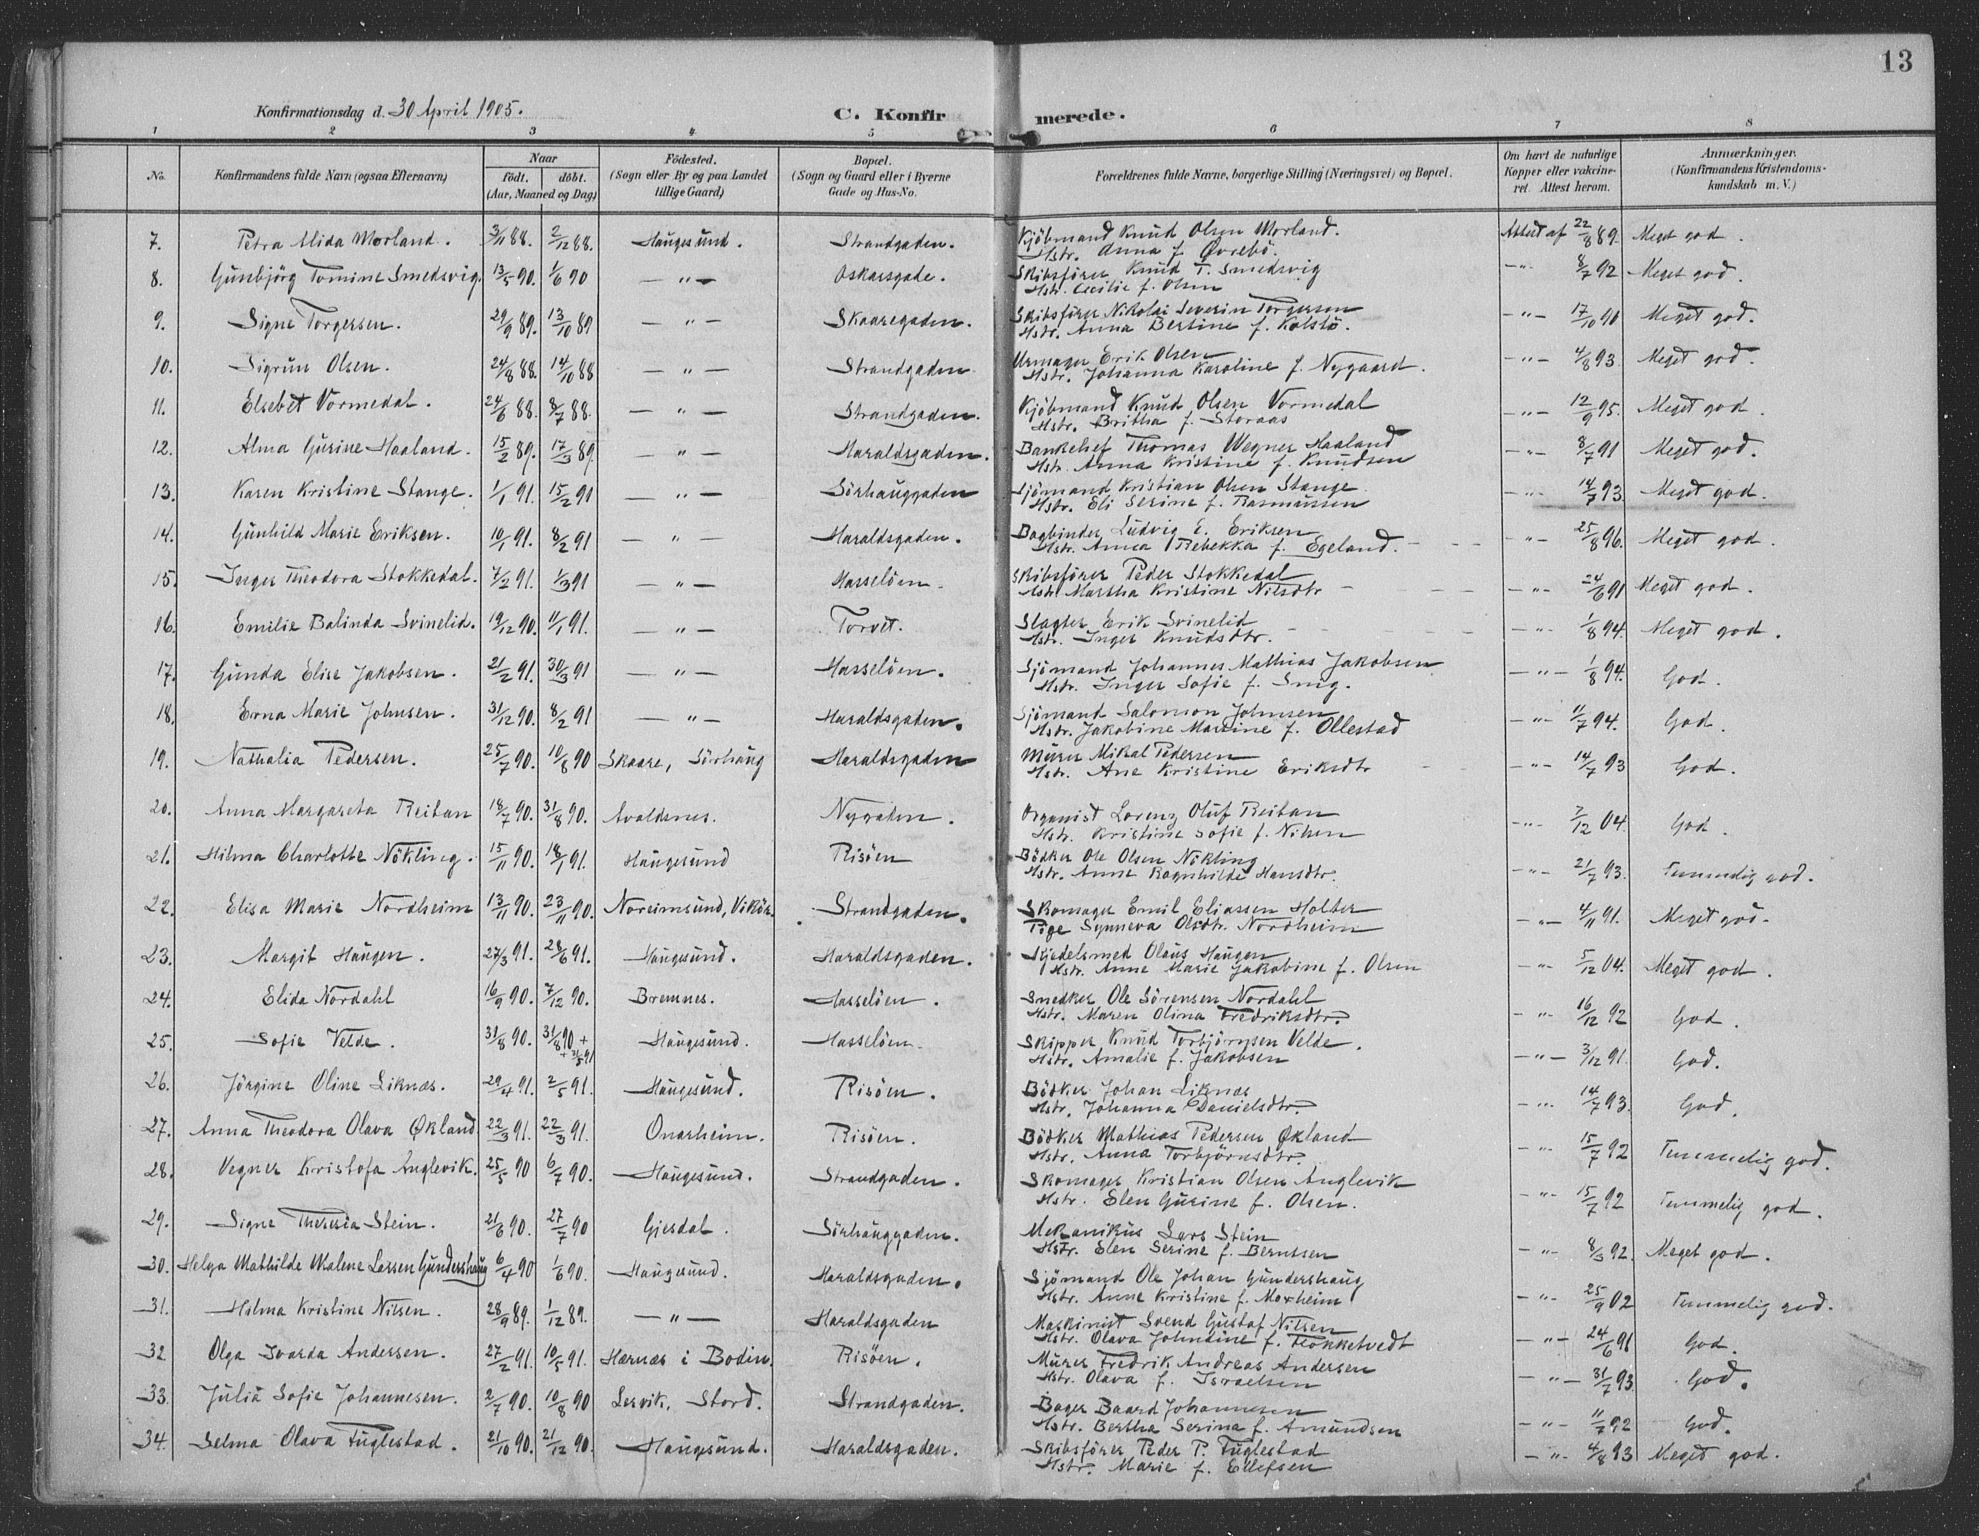 13
Konfirmationsdag d. 30 April 1905.
C. Konfirmerede.
1 2 3 4 5 6 7 8
No. Konfirmandens fulde Navn (ogsaa Efternavn) Naar födt. döbt. (Aar, Maaned og Dag) Födested. (Sogn eller By og paa Landet tillige Gaard) Bopæl. (Sogn og Gaard eller i Byerne Gade og Hus-No. Forældrenes fulde Navne, borgerlige Stilling (Næringsvei) og Bopæl. Om havt de naturlige Kopper eller vakcineret. Attest herom. Anmærkninger. (Konfirmandens Kristendomskundskab m. V.)
7. Petra Alida Morland. 3/11 88. 2/12 88. Haugesund. Strandgaden. Kjöbmand Knud Olsen Morland. Attest af 22/8 89. Meget god.
Hstr. Anna f. Øvrebö.
8. Gunbjörg Tomine Smedsvig. 13/5 90. 1/6 90 — " — Oskarsgade. Skibsförer Knud T. Smedsvig — " — 8/7 92 Meget god.
Hstr. Cecilie f. Olsen
9. Signe Torgersen. 29/9 89. 13/10 89 — " — Skaaregaden. Skibsförer Nikolai Severin Torgersen — " — 17/10 90 Meget god.
Hstr. Anna Bertine f. Kolstö.
10. Sigrun Olsen. 24/8 88. 14/10 88 — " — Strandgaden Urmager Erik Olsen — " — 4/8 93. Meget god.
Hstr. Johanna Karoline f. Nygaard.
11. Elsebet Vormedal. 24/6 88. 8/7 88. — " — Strandgaden. Kjöbmand Knud Olsen Vormedal — " — 12/9 95. Meget god.
Hstr. Britha f. Storaas
12. Alma Gurine Haaland. 15/2 89. 17/3 89. — " — Haraldsgaden. Bankchef Thomas Wegner Haaland — " — 8/7 91 Meget god.
Hstr. Anna Kristine f. Knudsen
13. Karen Kristine Stange. 1/1 91. 15/2 91 — " — Sörhauggaden Sjömand Kristian Olsen Stange — " — 14/7 93 Meget god.
Hstr. Eli Serine f. Rasmussen
14. Gunhild Marie Eriksen. 10/1 91. 8/2 91 — " — Haraldsgaden. Bogbinder Ludvig E. Eriksen — " — 25/8 96. Meget god.
Hstr. Anna Rebekka f. Egeland.
15. Inger Theodora Stokkedal. 7/2 91. 1/3 91 — " — Hasselöen. Skibsförer Peder Stokkedal — " — 24/6 91 Meget god.
Hstr. Martha Kristine Nilsdtr
16. Emilie Balinda Svinelid. 19/12 90. 11/1 91. — " — Torvet. Slagter Erik Svinelid — " — 1/8 94. Meget god.
Hstr. Inger Knudsdtr.
17. Gunda Elise Jakobsen. 21/2 91. 30/3 91 — " — Hasselöen. Sjömand Johannes Mathias Jakobsen — " — 1/8 94. God.
Hstr. Inger Sofie f.
18. Erna Marie Johnsen. 31/12 90. 8/2 91 — " — Haraldsgaden. Sjömand Salomon Johnsen — " — 11/7 94. God.
Hstr. Jakobine Martine f. Ollestad
19. Nathalia Pedersen. 25/7 90. 10/8 90 Skaare, Sörhaug Haraldsgaden Murer Mikal Pedersen — " — 14/7 93 God.
Hstr. Ane Kristine Eriksdtr
20. Anna Margareta Reitan 18/7 90. 31/8 90. Avaldsnes. Nygaden. Organist Lorenz Oluf Reitan — " — 7/12 04. God.
Hstr. Kristine Sofie f. Nilsen
21. Hilma Charlotte Nökling. 15/11 90. 18/1 91. Haugesund Risöen Bödker Ole Olsen Nökling — " — 21/7 93. Temmelig god.
Hstr. Anne Ragnhilde Hansdtr.
22. Elisa Marie Nordheim 13/11 90. 23/11 90. Noreimsund, Vikör. Strandgaden. Skomager Emil Eliassen Holter — " — 4/11 91. Meget god.
Pige Synneva Olsdtr. Nordheim
23. Margit Haugen. 27/3 91. 28/6 91. Haugesund. Haraldsgaden. Gjedelsmed Olaus Haugen — " — 5/12 04. Meget god.
Hstr. Anne Marie Jakobine f. Olsen
24. Elida Nordahl 16/9 90. 7/12 90. Bremnes. Hasselöen. Snedker Ole Sörensen Nordahl — " — 16/12 92 God.
Hstr. Maren Olina Fredriksdtr.
25. Sofie Velde. 31/8 90. 31/8 90 + + 31/5 91 Haugesund. Hasselöen. Skipper Knud Torbjörnsen Velde. — " — 3/12 91. God.
Hstr. Amalie f. Jakobsen
26. Jörgine Oline Liknæs. 29/4 91. 2/5 91. Haugesund. Risöen. Bödker Johan Liknæs — " — 14/7 93. God.
Hstr. Johanna Danielsdtr.
27. Anna Theodora Olava Økland. 22/3 91. 22/3 91. Onarheim. Risöen. Bödker Mathias Pedersen Økland — " — 15/7 92 Temmelig god.
Hstr. Anna Torbjörnsdtr.
28. Vegner Kristofa Anglevik. 25/5 90 6/7 90. Haugesund. Strandgaden. Skomager Kristian Olsen Anglevik — " — 15/7 92 Temmelig god.
Hstr. Elen Gurine f. Olsen.
29. Signe Theresia Stein. 21/6 90. 27/7 90 Gjesdal. Sörhauggaden. Mekanikus Lars Stein — " — 8/3 92. Meget god.
Hstr. Elen Serine f. Berntsen
30. Helga Mathilde Malene Larsen Gundershaug 6/4 90 1/6 90. Haugesund. Haraldsgaden. Sjömand Ole Johan Gundershaug — " — 25/9 02 Temmelig god.
Hstr. Anne Kristine f. Moxheim
31. Hilma Kristine Nilsen. 28/9 89. 1/12 89. — " — Haraldsgaden Maskinist Svend Gustaf Nilsen — " — 24/6 91 God.
Hstr. Olava Johndine f. Flokketvedt
32 Olga Ivarda Andersen. 27/2 91. 10/5 91. Hernæs i Bodin. Risöen. Murer Fredrik Andreas Andersen — " — 31/7 93 God.
Hstr. Olava f. Israelsen
33. Julia Sofie Johannesen. 2/7 90. 10/8 90 Lervik, Stord. Strandgaden. Bager Baard Johannesen — " — 11/7 92 God.
Hstr. Bertha Serina f. Amundsen
34. Selma Olava Fuglestad. 21/10 90. 21/12 90. Haugesund. Haraldsgaden. Skibsförer Peder P. Fuglestad — " — 4/8 93 Meget god.
Hstr. Marie f. Ellefsen